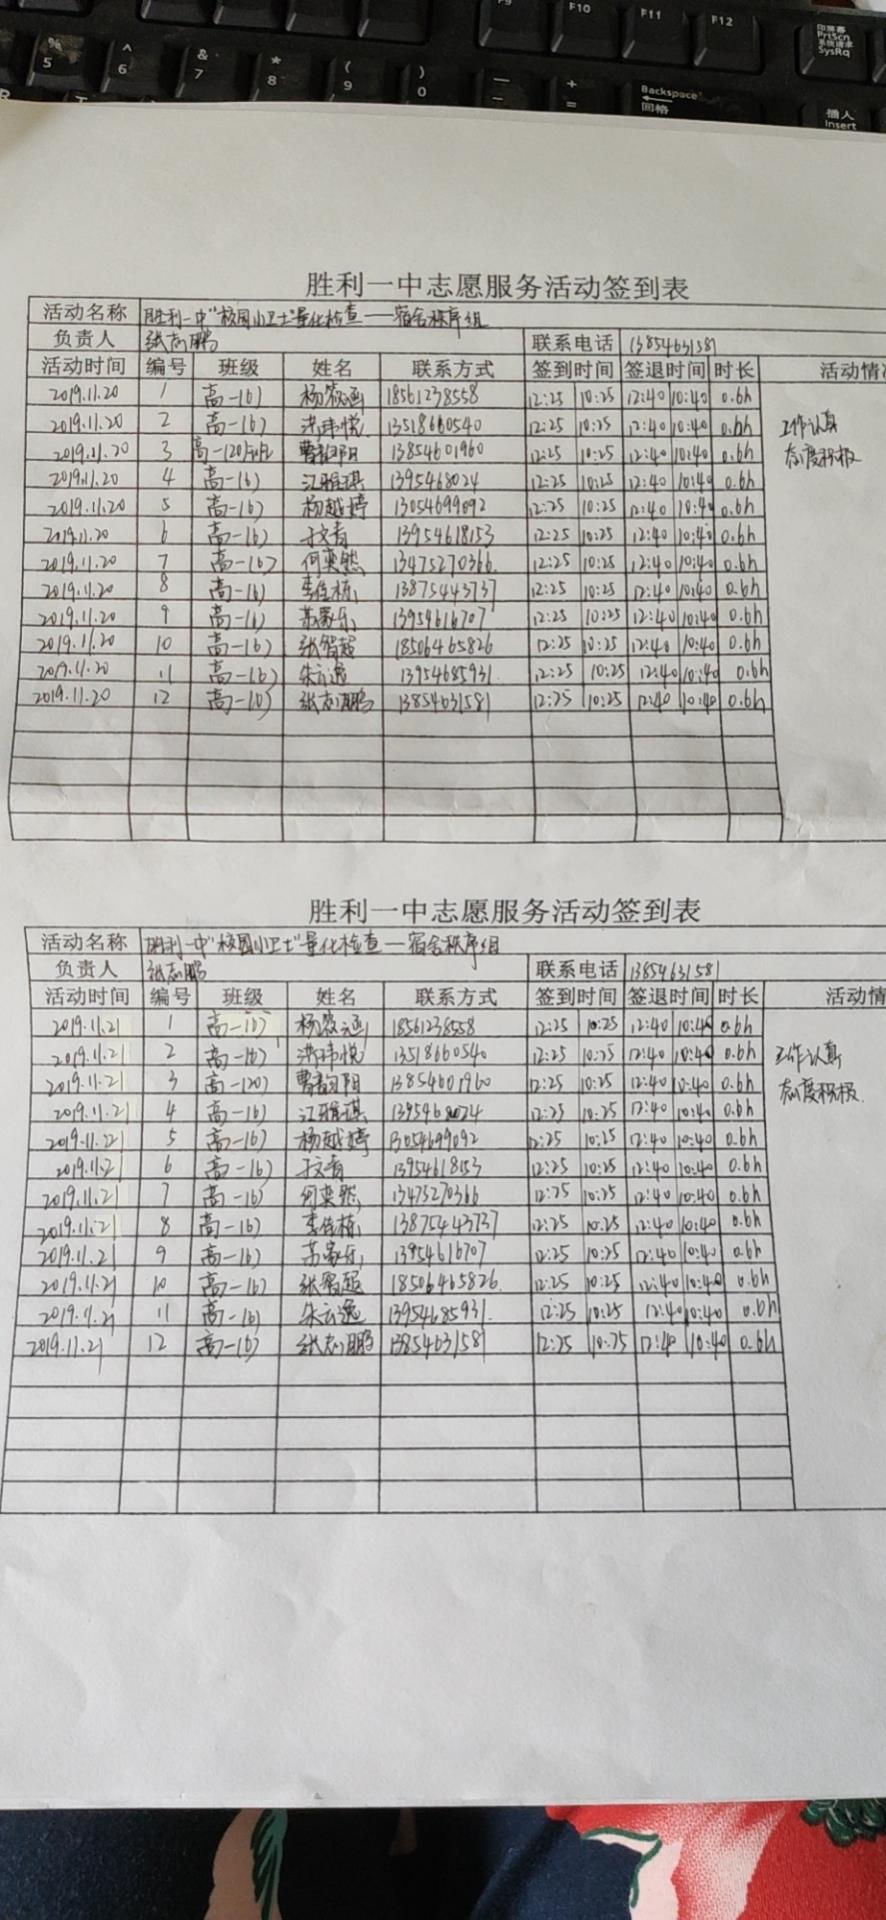 % 5
^ 6
& 7
* 8
( 9
) 0
— -
+ =
Backspace 回格
F9
F10
F11
F12
印屏幕 PrtScn 系统请求 SysRq
插人 Insert
胜利一中志愿服务活动签到表
活动名称 胜利一中"校园小卫士"量化检查——宿舍秩序组
负责人 张志鹏 联系电话 13854631581
活动时间 编号 班级 姓名 联系方式 签到时间 签退时间 时长 活动情
2019.11.20 1 高一16) 杨筱涵 18561238558 12:25 10:25 12:40 10:40 0.6h
2019.11.20 2 高一16) 洪玮悦 13518660540 12:25 10:25 12:40 10:40 0.6h 工作认真
2019.11.20 3 高一120) 曹韵阳 13854601960 12:25 10:25 12:40 10:40 0.6h 态度积极
2019.11.20 4 高一16) 江雅琪 1395468024 12:25 10:25 12:40 10:40 0.6h
2019.11.20 5 高一16) 杨越婷 13054699092 12:25 10:25 12:40 10:40 0.6h
2019.11.20 6 高一16) 于文青 13954618153 12:25 10:25 12:40 10:40 0.6h
2019.11.20 7 高一16) 何奕然 13475270366 12:25 10:25 12:40 10:40 0.6h
2019.11.20 8 高一16) 李佳栋 13875443737 12:25 10:25 12:40 10:40 0.6h
2019.11.20 9 高一16) 苏家乐 13954616707 12:25 10:25 12:40 10:40 0.6h
2019.11.20 10 高一16) 张智超 18506465826 12:25 10:25 12:40 10:40 0.6h
2019.11.20 11 高一16) 朱云逸 13954685931 12:25 10:25 12:40 10:40 0.6h
2019.11.20 12 高一16) 张志鹏 13854631581 12:25 10:25 12:40 10:40 0.6h
胜利一中志愿服务活动签到表
活动名称 胜利一中"校园小卫士"量化检查—宿舍秩序组
负责人 张志鹏 联系电话 13854631581
活动时间 编号 班级 姓名 联系方式 签到时间 签退时间 时长 活动情
2019.11.21 1 高一16) 杨筱涵 18561238558 12:25 10:25 12:40 10:40 0.6h
2019.11.21 2 高一16) 洪玮悦 13518660540 12:25 10:25 12:40 10:40 0.6h 工作认真
2019.11.21 3 高一120) 曹韵阳 13854601960 12:25 10:25 12:40 10:40 0.6h 态度积极.
2019.11.21 4 高一16) 江雅琪 1395468024 12:25 10:25 12:40 10:40 0.6h
2019.11.21 5 高一16) 杨越婷 13054699092 12:25 10:25 12:40 10:40 0.6h
2019.11.21 6 高一16) 于文青 13954618153 12:25 10:25 12:40 10:40 0.6h
2019.11.21 7 高一16) 何奕然 13475270366 12:25 10:25 12:40 10:40 0.6h
2019.11.21 8 高一16) 李佳栋 13875443737 12:25 10:25 12:40 10:40 0.6h
2019.11.21 9 高一16) 苏家乐 13954616707 12:25 10:25 12:40 10:40 0.6h
2019.11.21 10 高一16) 张智超 18506465826 12:25 10:25 12:40 10:40 0.6h
2019.11.21 11 高一16) 朱云逸 13954685931 12:25 10:25 12:40 10:40 0.6h
2019.11.21 12 高一16) 张志鹏 13854631581 12:25 10:25 12:40 10:40 0.6h